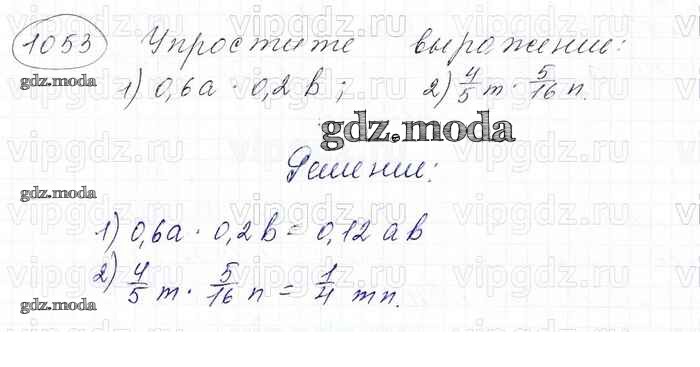 1053 Упростите выражение:
gdz.moda
1) 0,6a · 0,2b; 2) 4/5 m · 5/16 n.
gdz.moda
Решение:
gdz.moda
1) 0,6a · 0,2b = 0,12 ab
2) 4/5 m · 5/16 n = 1/4 mn.
gdz.moda
vipgdz.com